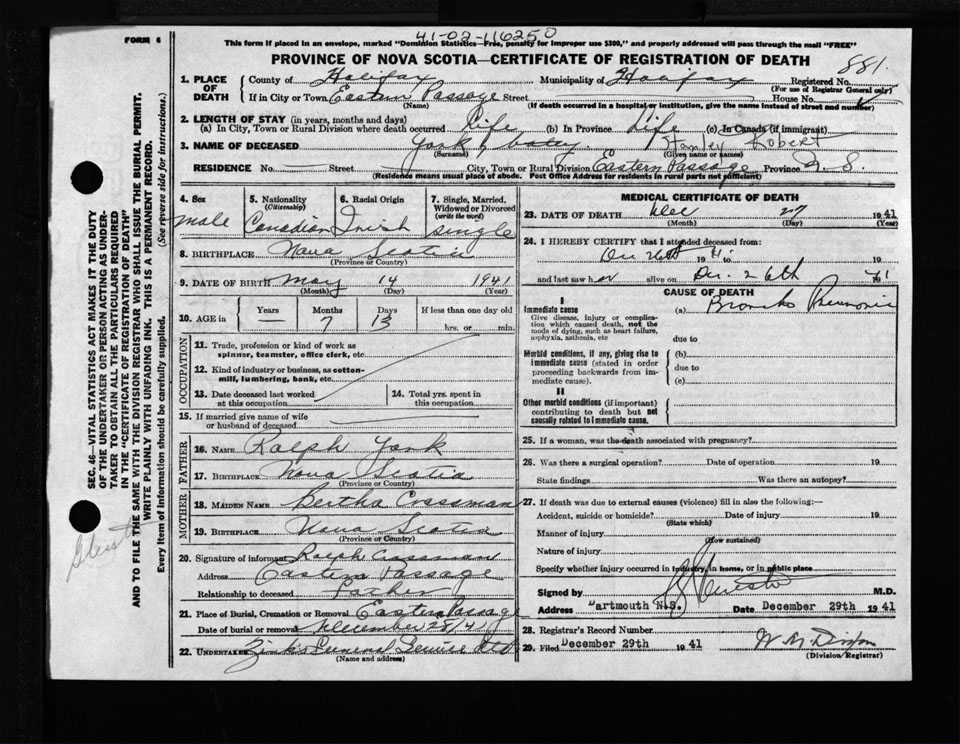 41-02-116250
FORM 6
This form if placed in an envelope, marked "Dominion Statistics—Free, penalty for improper use $300," and properly addressed will pass through the mail "FREE"
PROVINCE OF NOVA SCOTIA—CERTIFICATE OF REGISTRATION OF DEATH
881.
1. PLACE OF DEATH County of Halifax Municipality of Halifax Registered No.
(For use of Registrar General only)
If in City or Town Eastern Passage Street House No.
(Name) (If death occurred in a hospital or institution, give the name instead of street and number)
2. LENGTH OF STAY (in years, months and days)
(a) In City, Town or Rural Division where death occurred Life (b) In Province Life (c) In Canada (if immigrant)
3. NAME OF DECEASED York Stanley Robert
(Surname) (Given name or names)
RESIDENCE No. Street City, Town or Rural Division Eastern Passage Province N. S.
(Residence means usual place of abode. Post Office Address for residents in rural parts not sufficient)
4. Sex male
5. Nationality (Citizenship) Canadian
6. Racial Origin Irish
7. Single, Married, Widowed or Divorced (write the word) single
8. BIRTHPLACE Nova Scotia
(Province or Country)
9. DATE OF BIRTH May 14 1941
(Month) (Day) (Year)
10. AGE in Years — Months 7 Days 13 If less than one day old
hrs. or min.
OCCUPATION
11. Trade, profession or kind of work as spinner, teamster, office clerk, etc.
12. Kind of industry or business, as cotton-mill, lumbering, bank, etc.
13. Date deceased last worked at this occupation
14. Total yrs. spent in this occupation
15. If married give name of wife or husband of deceased
FATHER
16. NAME Ralph York
17. BIRTHPLACE Nova Scotia
(Province or Country)
MOTHER
18. MAIDEN NAME Bertha Crossman
19. BIRTHPLACE Nova Scotia
(Province or Country)
20. Signature of informant Ralph Crossman
Address Eastern Passage
Relationship to deceased
21. Place of Burial, Cremation or Removal Eastern Passage
Date of burial or removal December 28/41
22. UNDERTAKER Zink's Funeral Service Ltd
(Name and address)
MEDICAL CERTIFICATE OF DEATH
23. DATE OF DEATH Dec 27 1941
(Month) (Day) (Year)
24. I HEREBY CERTIFY that I attended deceased from:
26th 19 41 to
and last saw h alive on Dec. 26th 19 41
CAUSE OF DEATH
I
Immediate cause (a) Broncho Pneumonia
Give disease, injury or complication which caused death, not the mode of dying, such as heart failure, asphyxia, asthenia, etc
due to
Morbid conditions, if any, giving rise to immediate cause (stated in order proceeding backwards from immediate cause).
(b)
due to
(c)
II
Other morbid conditions (if important) contributing to death but not causally related to immediate cause.
25. If a woman, was the death associated with pregnancy?
26. Was there a surgical operation? Date of operation 19
State findings Was there an autopsy?
27. If death was due to external causes (violence) fill in also the following:—
Accident, suicide or homicide? Date of injury 19
(State which)
Manner of injury
(How sustained)
Nature of injury
Specify whether injury occurred in industry, in home, or in public place
Signed by M.D.
Address Dartmouth N.S. Date December 29th 1941
28. Registrar's Record Number
29. Filed December 29th 1941
(Division Registrar)
SEC. 46—VITAL STATISTICS ACT MAKES IT THE DUTY
OF THE UNDERTAKER OR PERSON ACTING AS UNDERTAKER TO OBTAIN ALL THE PARTICULARS REQUIRED
IN THE "CERTIFICATE OF REGISTRATION OF DEATH"
AND TO FILE THE SAME WITH THE DIVISION REGISTRAR WHO SHALL ISSUE THE BURIAL PERMIT.
WRITE PLAINLY WITH UNFADING INK. THIS IS A PERMANENT RECORD.
Every item of information should be carefully supplied. (See reverse side for instructions.)